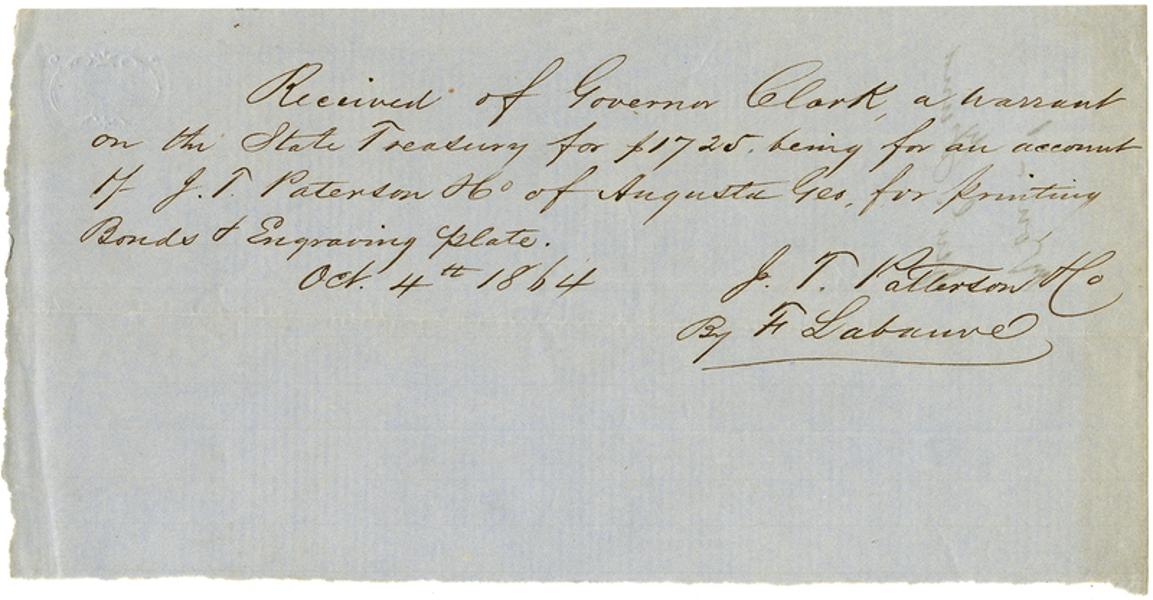 Received of Governor Clark, a warrant
on the State Treasury for $1725. being for an account
of J. T. Paterson & Co of Augusta Geo, for printing
Bonds & Engraving plate.
Oct. 4th 1864
J. T. Patterson & Co
By F Labauve